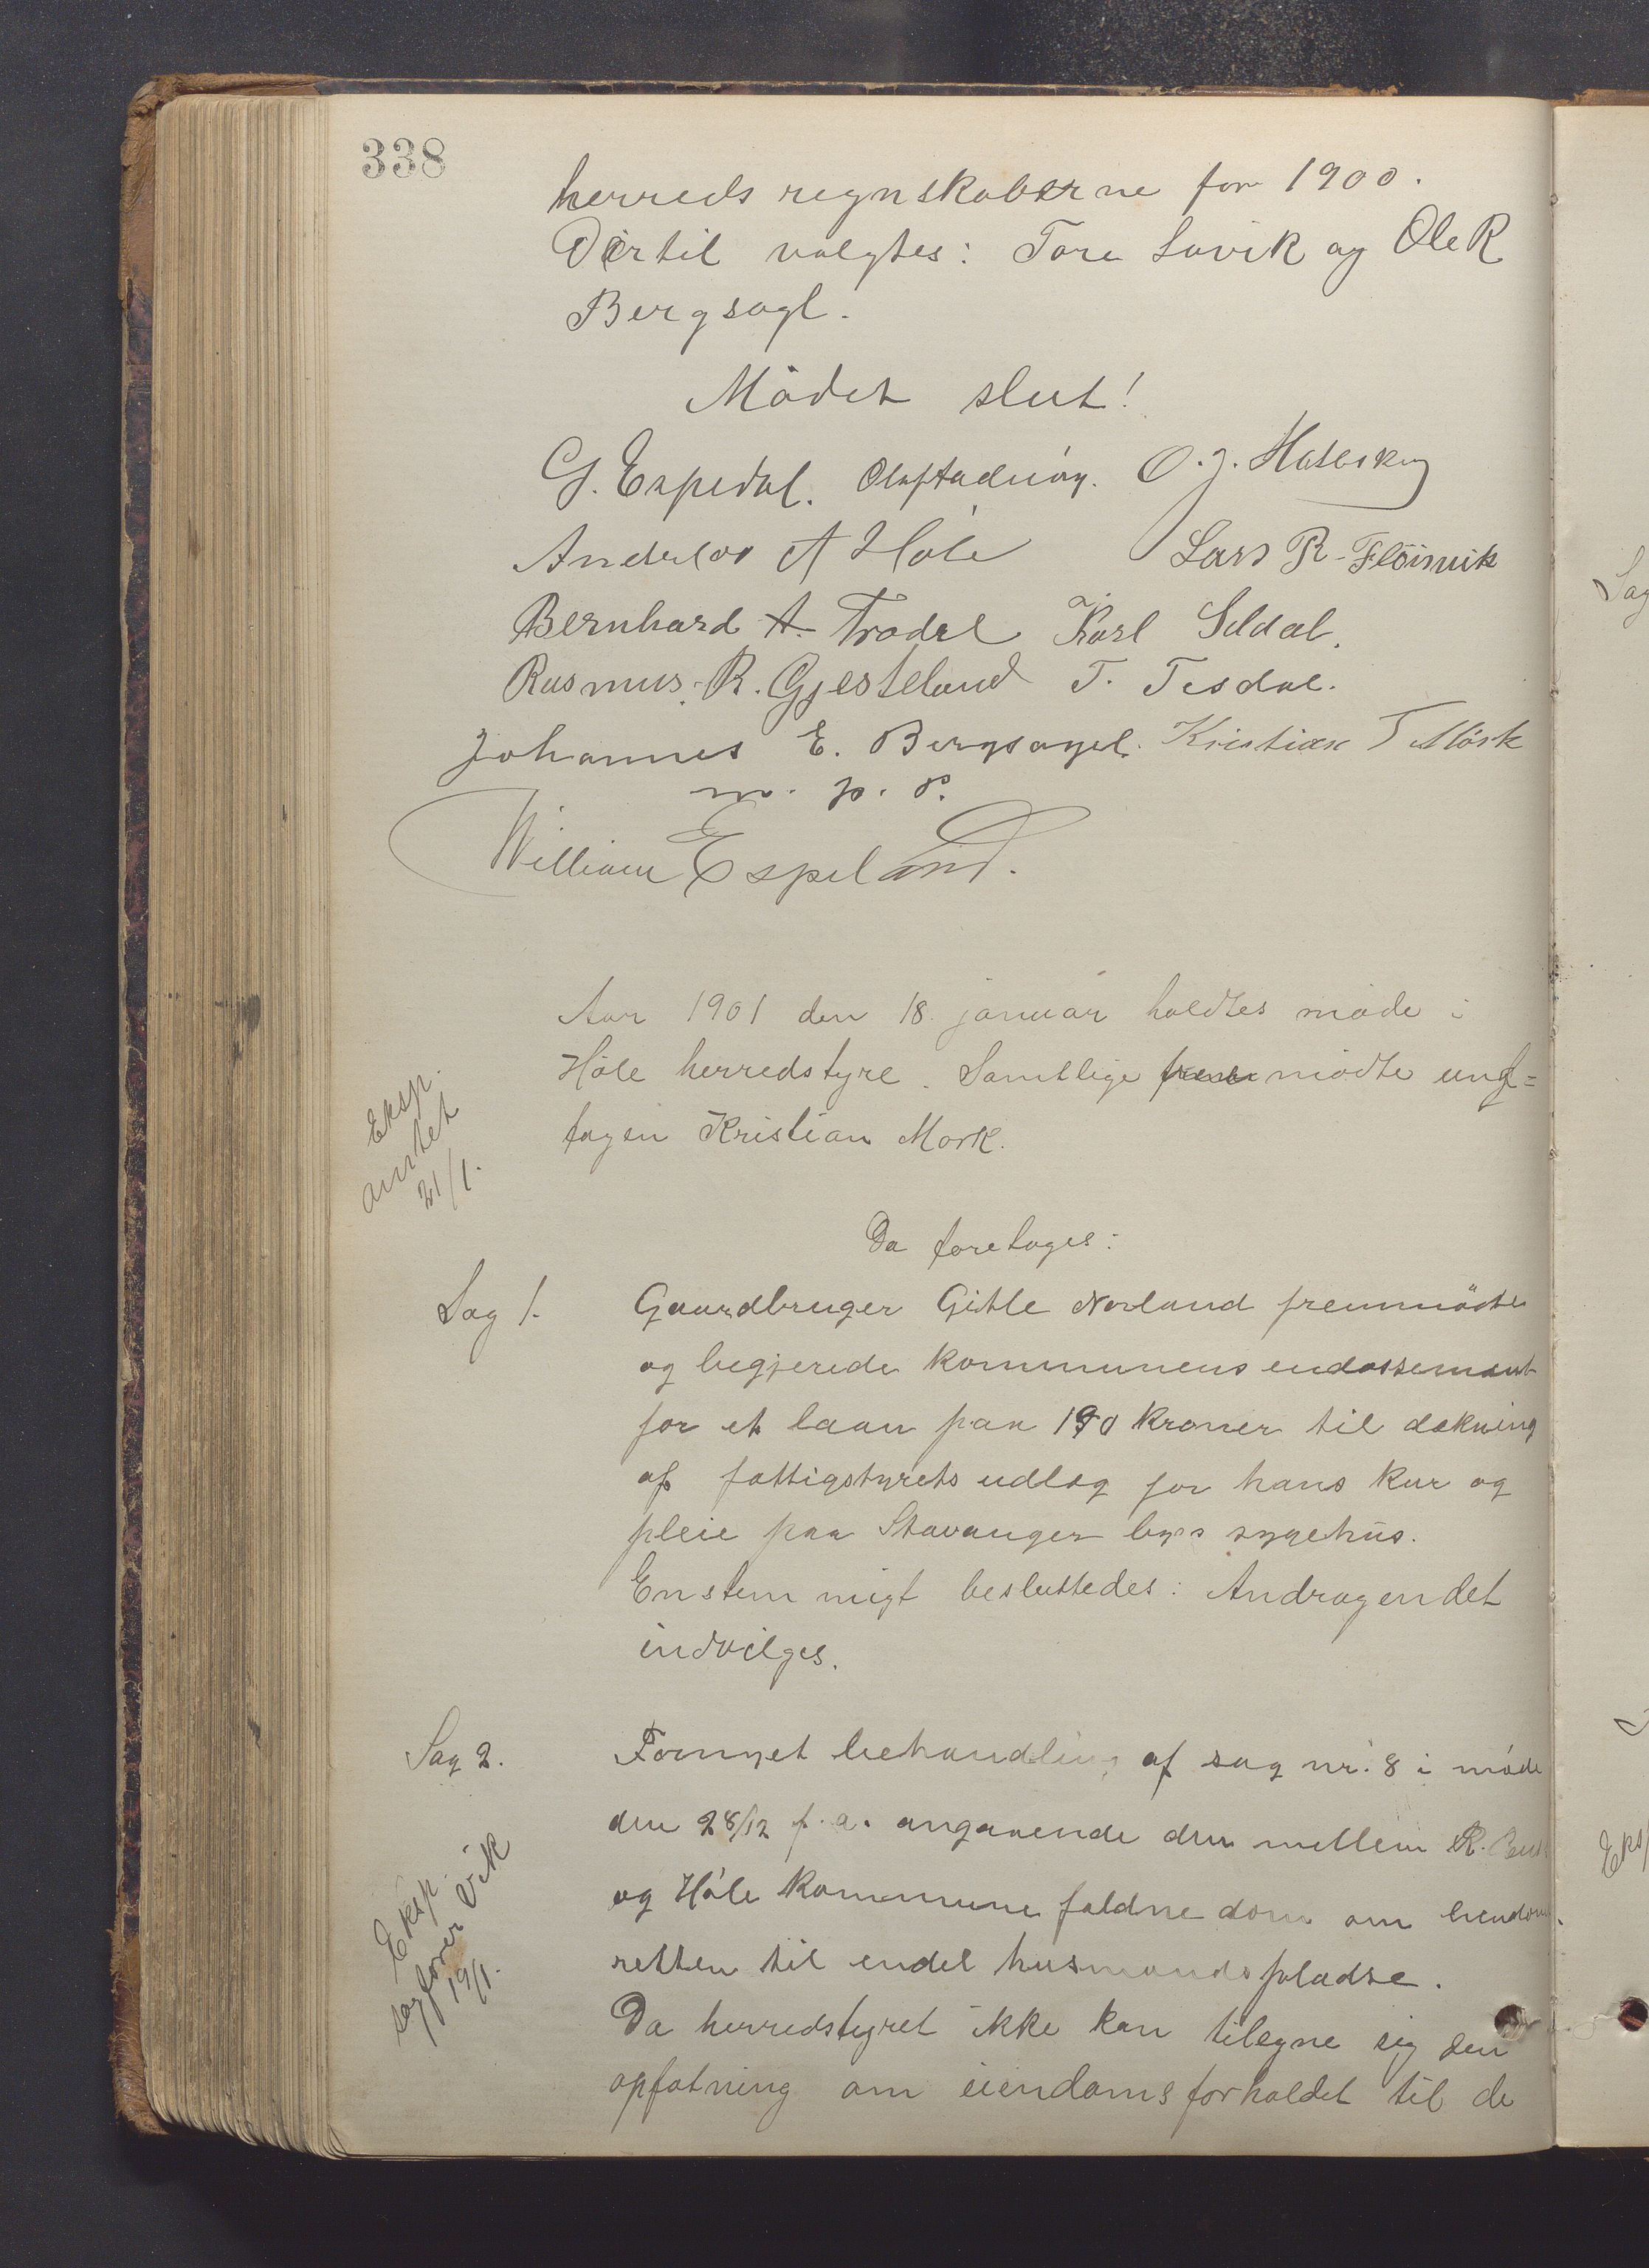 338
herreds regnskaberne for 1900.
Dertil valgtes: Tore Lavik og Ole R
Bergsagl.
Mödet slut!
G. Espedal. O. J. Halleskog
Andreas A Höle Lars R. Flöisvik
Bernhard A. Trodal Karl Seldal.
Rasmus. R. Gjesteland T. Tisdal.
Johannes E. Bergsagel. Kristian T Mörk
m. p. P.
William Espeland.
Aar 1901 den 18. januar holdtes möde i
Höle herredstyre. Samtlige mödte und=
tagen Kristian Mørk.
Eksp.
amtet
21/1.
Da foretoges:
Sag 1.
Gaardbruger Gitle Norland fremmödte
og begjerede kommunens endossement
for et laan paa 190 kroner til dækning
af fattigstyrets udlæg for hans kur og
pleie paa Stavanger bys sygehus.
Enstemmigt besluttedes: Andragendet
indvilges.
Sag 2.
Fornyet behandling af sag nr. 8 i möde
den 28/12 f. a. angaaende den mellem R.
og Höle kommune faldne dom om eiendoms
retten til endel husmandspladse.
Eksp.
sagfører Vik
19/1.
Da herredstyret ikke kan tilegne sig den
opfatning om eiendomsforholdet til de
Sag
Eksp